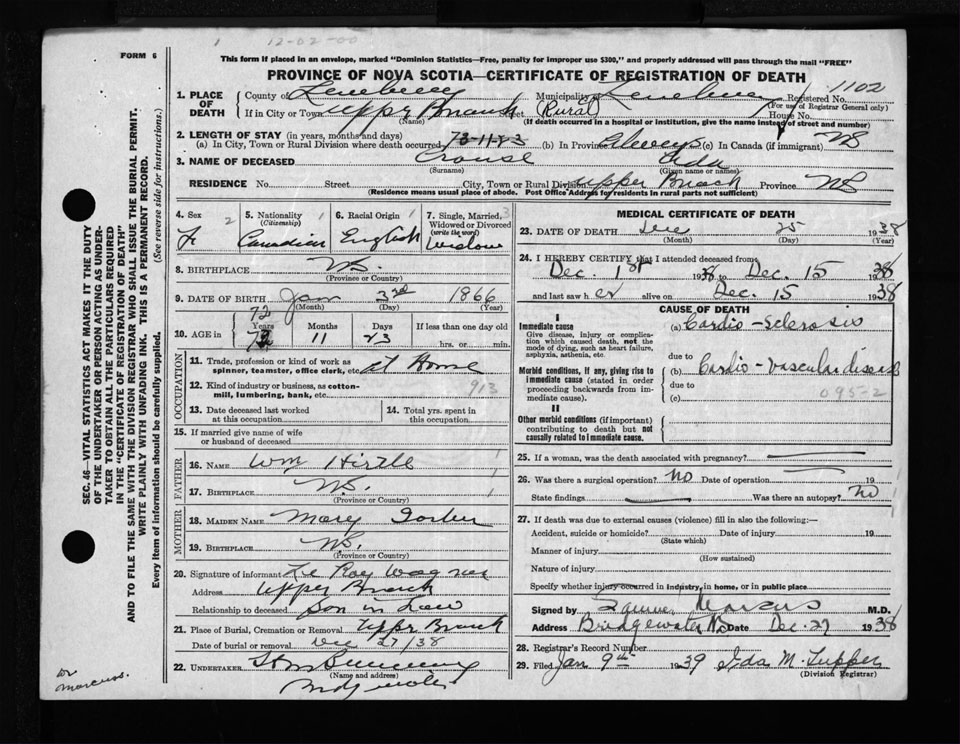 1 12-02-00
FORM 6
This form if placed in an envelope, marked "Dominion Statistics—Free, penalty for improper use $300," and properly addressed will pass through the mail "FREE"
PROVINCE OF NOVA SCOTIA—CERTIFICATE OF REGISTRATION OF DEATH
1102
1. PLACE OF DEATH
County of Lunenburg Municipality of Lunenburg Registered No.
(For use of Registrar General only)
If in City or Town Upper Branch Street (Rural) House No.
(Name) (If death occurred in a hospital or institution, give the name instead of street and number)
2. LENGTH OF STAY (in years, months and days)
(a) In City, Town or Rural Division where death occurred 73-11-23 (b) In Province Always (c) In Canada (if immigrant) NS
3. NAME OF DECEASED Crouse Ida
(Surname) (Given name or names)
RESIDENCE No. Street City, Town or Rural Division Upper Branch Province NS
(Residence means usual place of abode. Post Office Address for residents in rural parts not sufficient)
4. Sex 2
Fe
5. Nationality 1
(Citizenship)
Canadian
6. Racial Origin 1
English
7. Single, Married, 3
Widowed or Divorced
(write the word)
Widow
8. BIRTHPLACE N.S.
(Province or Country)
9. DATE OF BIRTH Jan 3rd 1866
(Month) (Day) (Year)
10. AGE in
72
Years Months Days If less than one day old
11 23 hrs. or min.
OCCUPATION
11. Trade, profession or kind of work as
spinner, teamster, office clerk, etc. at Home
12. Kind of industry or business, as cotton-
mill, lumbering, bank, etc. 913
13. Date deceased last worked
at this occupation
14. Total yrs. spent in
this occupation
15. If married give name of wife
or husband of deceased
FATHER
16. NAME Wm Hirtle 1
17. BIRTHPLACE N.S. 1
(Province or Country)
MOTHER
18. MAIDEN NAME Mary
19. BIRTHPLACE N.S.
(Province or Country)
20. Signature of informant Le Roy Wagner
Address Upper Branch
Relationship to deceased Son in Law
21. Place of Burial, Cremation or Removal Upper Branch
Date of burial or removal Dec 27/38
22. UNDERTAKER
(Name and address)
Bridgewater
MEDICAL CERTIFICATE OF DEATH
23. DATE OF DEATH Dec 25 1938
(Month) (Day) (Year)
24. I HEREBY CERTIFY that I attended deceased from
Dec. 1st 1938 to Dec. 15 1938
and last saw her alive on Dec. 15 1938
CAUSE OF DEATH
I
Immediate cause
Give disease, injury or complica-
tion which caused death, not the
mode of dying, such as heart failure,
asphyxia, asthenia, etc.
(a) Cardio-Sclerosis
due to
Morbid conditions, if any, giving rise to
immediate cause (stated in order
proceeding backwards from im-
mediate cause).
(b) Cardio-Vascular disease
due to
095-2
(c)
II
Other morbid conditions (if important)
contributing to death but not
causally related to immediate cause.
25. If a woman, was the death associated with pregnancy?
26. Was there a surgical operation? No Date of operation 19
State findings Was there an autopsy? No
27. If death was due to external causes (violence) fill in also the following:—
Accident, suicide or homicide? Date of injury 19
(State which)
Manner of injury
(How sustained)
Nature of injury
Specify whether injury occurred in industry, in home, or in public place
Signed by Marcus M.D.
Address Bridgewater NS Date Dec. 27 1938
28. Registrar's Record Number
29. Filed Jan 9th 1939 Ida M. Tupper
(Division Registrar)
SEC. 46—VITAL STATISTICS ACT MAKES IT THE DUTY
OF THE UNDERTAKER OR PERSON ACTING AS UNDER-
TAKER TO OBTAIN ALL THE PARTICULARS REQUIRED
IN THE "CERTIFICATE OF REGISTRATION OF DEATH"
AND TO FILE THE SAME WITH THE DIVISION REGISTRAR WHO SHALL ISSUE THE BURIAL PERMIT.
WRITE PLAINLY WITH UNFADING INK. THIS IS A PERMANENT RECORD.
Every item of information should be carefully supplied. (See reverse side for instructions.)
Dr
Marcus.